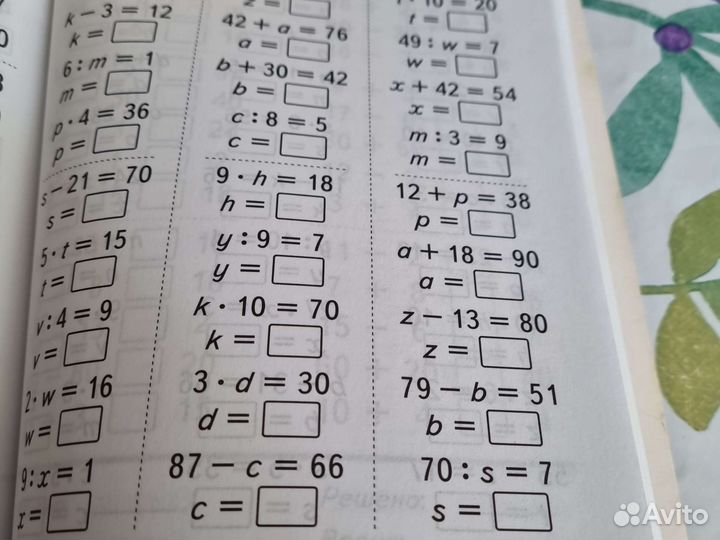 k − 3 = 12
k =
6 : m = 1
m =
p · 4 = 36
p =
s − 21 = 70
s =
5 · t = 15
t =
v : 4 = 9
v =
2 · w = 16
w =
9 : x = 1
x =
z =
42 + a = 76
a =
b + 30 = 42
b =
c : 8 = 5
c =
9 · h = 18
h =
y : 9 = 7
y =
k · 10 = 70
k =
3 · d = 30
d =
87 − c = 66
c =
· 10 = 20
t =
49 : w = 7
w =
x + 42 = 54
x =
m : 3 = 9
m =
12 + p = 38
p =
a + 18 = 90
a =
z − 13 = 80
z =
79 − b = 51
b =
70 : s = 7
s =
Решено:
Avito